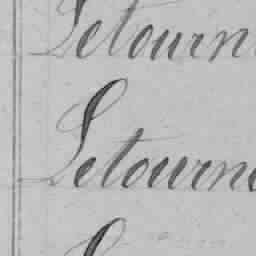 Letourn
Letourne